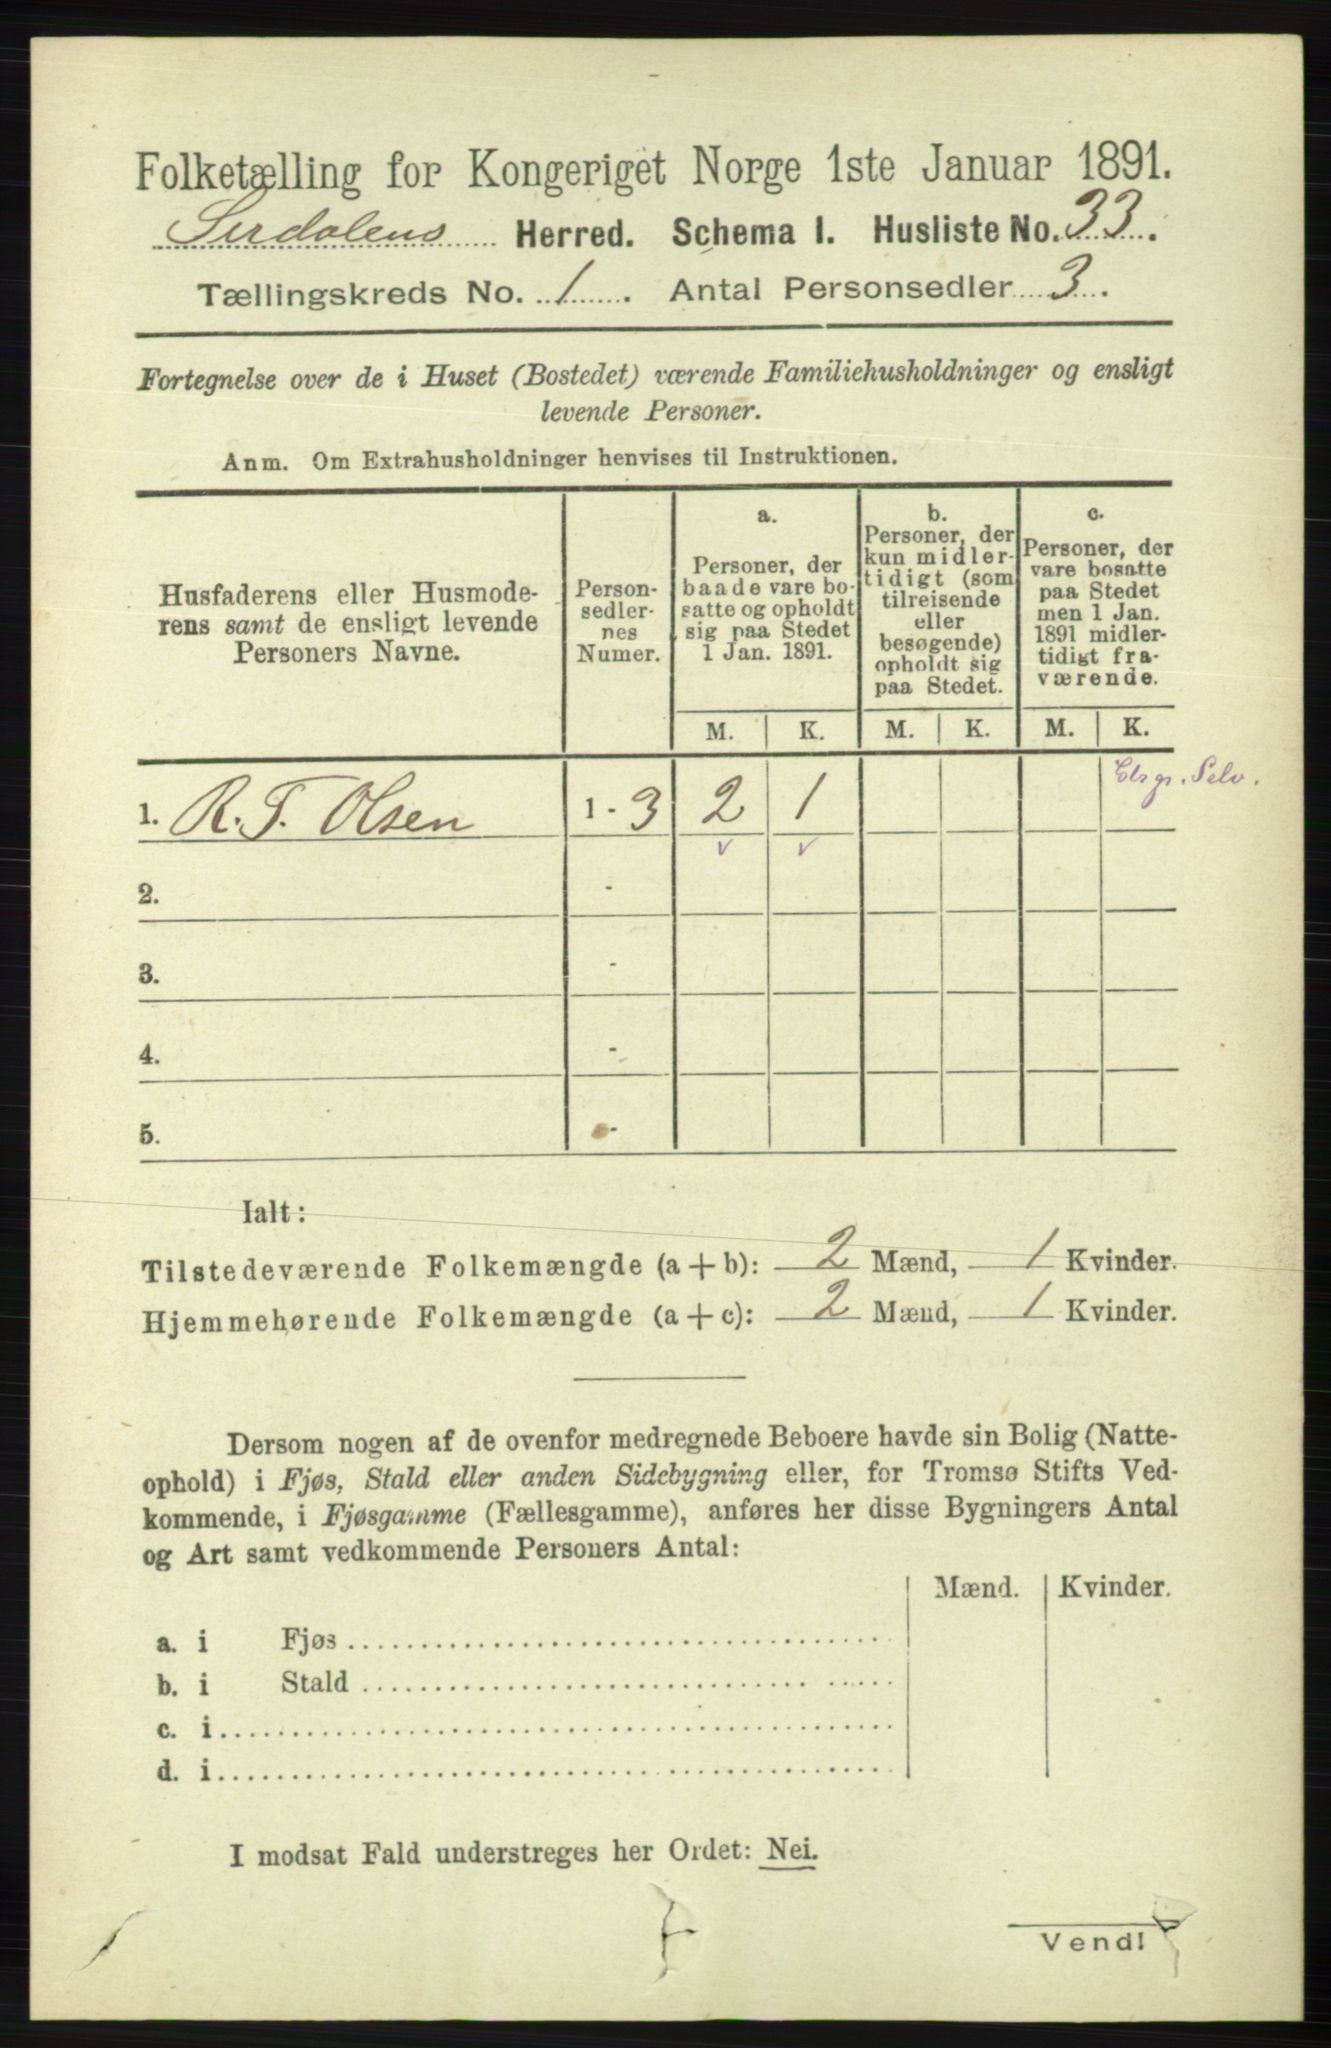 Folketælling for Kongeriget Norge 1ste Januar 1891.
Sirdalens Herred. Schema I. Husliste No. 33.
Tællingskreds No. 1. Antal Personsedler 3.
Fortegnelse over de i Huset (Bostedet) værende Familiehusholdninger og ensligt
levende Personer.
Anm. Om Extrahusholdninger henvises til Instruktionen.
Husfaderens eller Husmode-
rens samt de ensligt levende
Personers Navne.
Person-
sedler-
nes
Numer.
a.
Personer, der
baade vare bo-
satte og opholdt
sig paa Stedet
1 Jan. 1891.
b.
Personer, der
kun midler-
tidigt (som
tilreisende
eller
besøgende)
opholdt sig
paa Stedet.
c.
Personer, der
vare bosatte
paa Stedet
men 1 Jan.
1891 midler-
tidigt fra-
værende.
M. K. M. K. M. K.
Selv.
1. R. T. Olsen 1 - 3 2 1
v v
2. -
3. -
4. -
5. -
Ialt:
Tilstedeværende Folkemængde (a + b): 2 Mænd, 1 Kvinder.
Hjemmehørende Folkemængde (a + c): 2 Mænd, 1 Kvinder.
Dersom nogen af de ovenfor medregnede Beboere havde sin Bolig (Natte-
ophold) i Fjøs, Stald eller anden Sidebygning eller, for Tromsø Stifts Ved-
kommende, i Fjøsgamme (Fællesgamme), anføres her disse Bygningers Antal
og Art samt vedkommende Personers Antal:
Mænd. Kvinder.
a. i Fjøs
b. i Stald
c. i
d. i
I modsat Fald understreges her Ordet: Nei.
Vend!